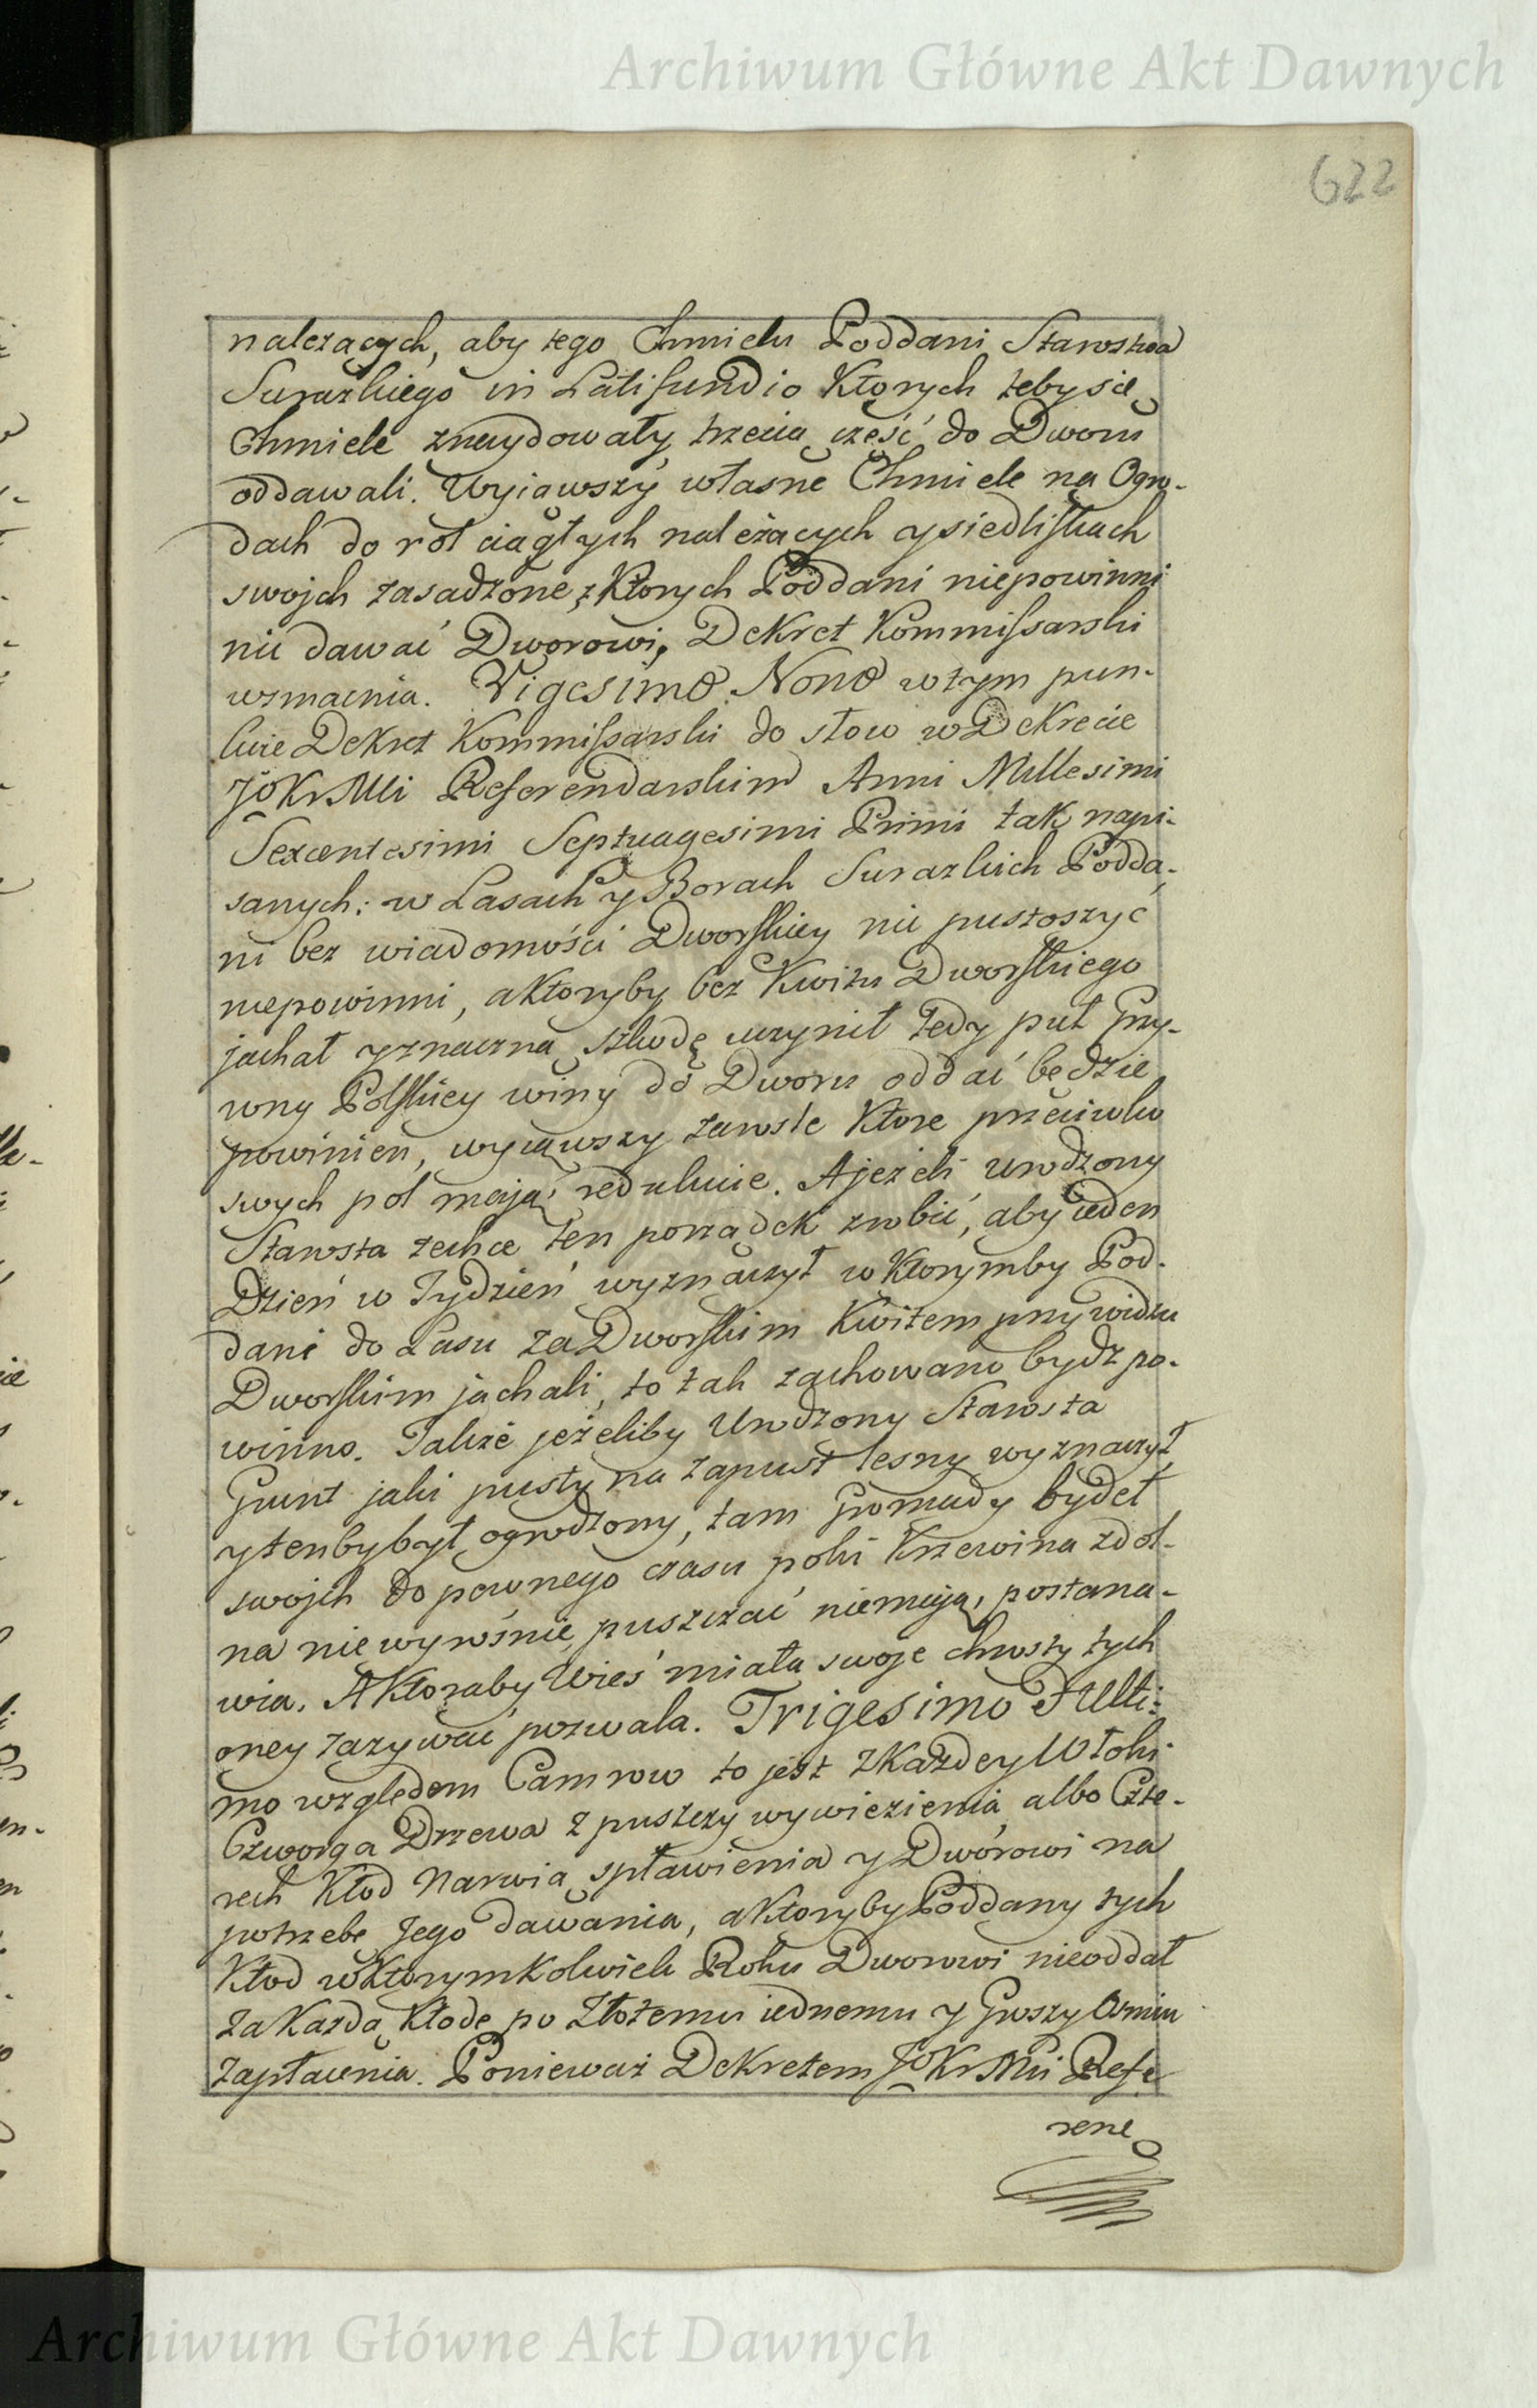 Archiwum Główne Akt Dawnych
622
nalezących, aby tego Chmielu Poddani Starostwa
Surazkiego in Latifundio Ktorych żeby się
Chmiele znaydowały, trzecią część do Dworu
oddawali. Wyiąwszy własne Chmiele na Ogro-
dach do rol ciągłych należących y siedliskach
swojch zasadzone, z Ktorych Poddani niepowinni
nic dawać Dworowi, Dekret Kommissarski
wzmacnia. Vigesimo Nono w tym pun-
kcie Dekret Kommissarski do słow w Dekrecie
JoKrMci Referendarskim Anni Millesimi
Sexcentesimi Septuagesimi Primi tak napi-
sanych: w Lasach y Borach Surazkich Podda-
ni bez wiadomości Dworskiey nic pustoszyć
niepowinni, a Ktoryby bez Kwitu Dworskiego
jachał y znaczną szkodę uczynił tedy puł Grzy-
wny Polskiey winy do Dworu oddać będzie
powinien, wyiąwszy zarosle Ktore przeciwko
swych pol mają, redukuie. A jeżeli Urodzony
Starosta zechce ten porządek zrobić, aby ieden
Dzień w Tydzień wyznaczył w Ktorymby Pod-
dani do Lasu za Dworskim Kwitem przy widzu
Dworskim jachali, to tak zachowano bydz po-
winno. Także jeżeliby Urodzony Starosta
Grunt jaki pusty na zapust lesny wyznaczył
y tenby był ogrodzony, tam Gromady bydeł
swojch do pewnego czasu poki Krzewina zdol-
na nie wyrośnie puszczać niemają, postana-
wia. A Ktoraby Wieś miała swoje chrosty tych
oney zazywać pozwala. Trigesimo et Ulti-
mo względem Camrow to jest z Kazdey Włoki
Czworga Drzewa z puszczy wywiezienia, albo Czte-
rech Kłod Narwią spławienia y Dworowi na
potrzebę Jego dawania, a Ktoryby Poddany tych
Kłod w Ktorymkolwiek Roku Dworowi nieoddał
za Kazdą Kłodę po Złotemu iednemu y Groszy Osmiu
zapłacenia. Ponieważ Dekretem JoKrMci Refe
rene
Archiwum Główne Akt Dawnych